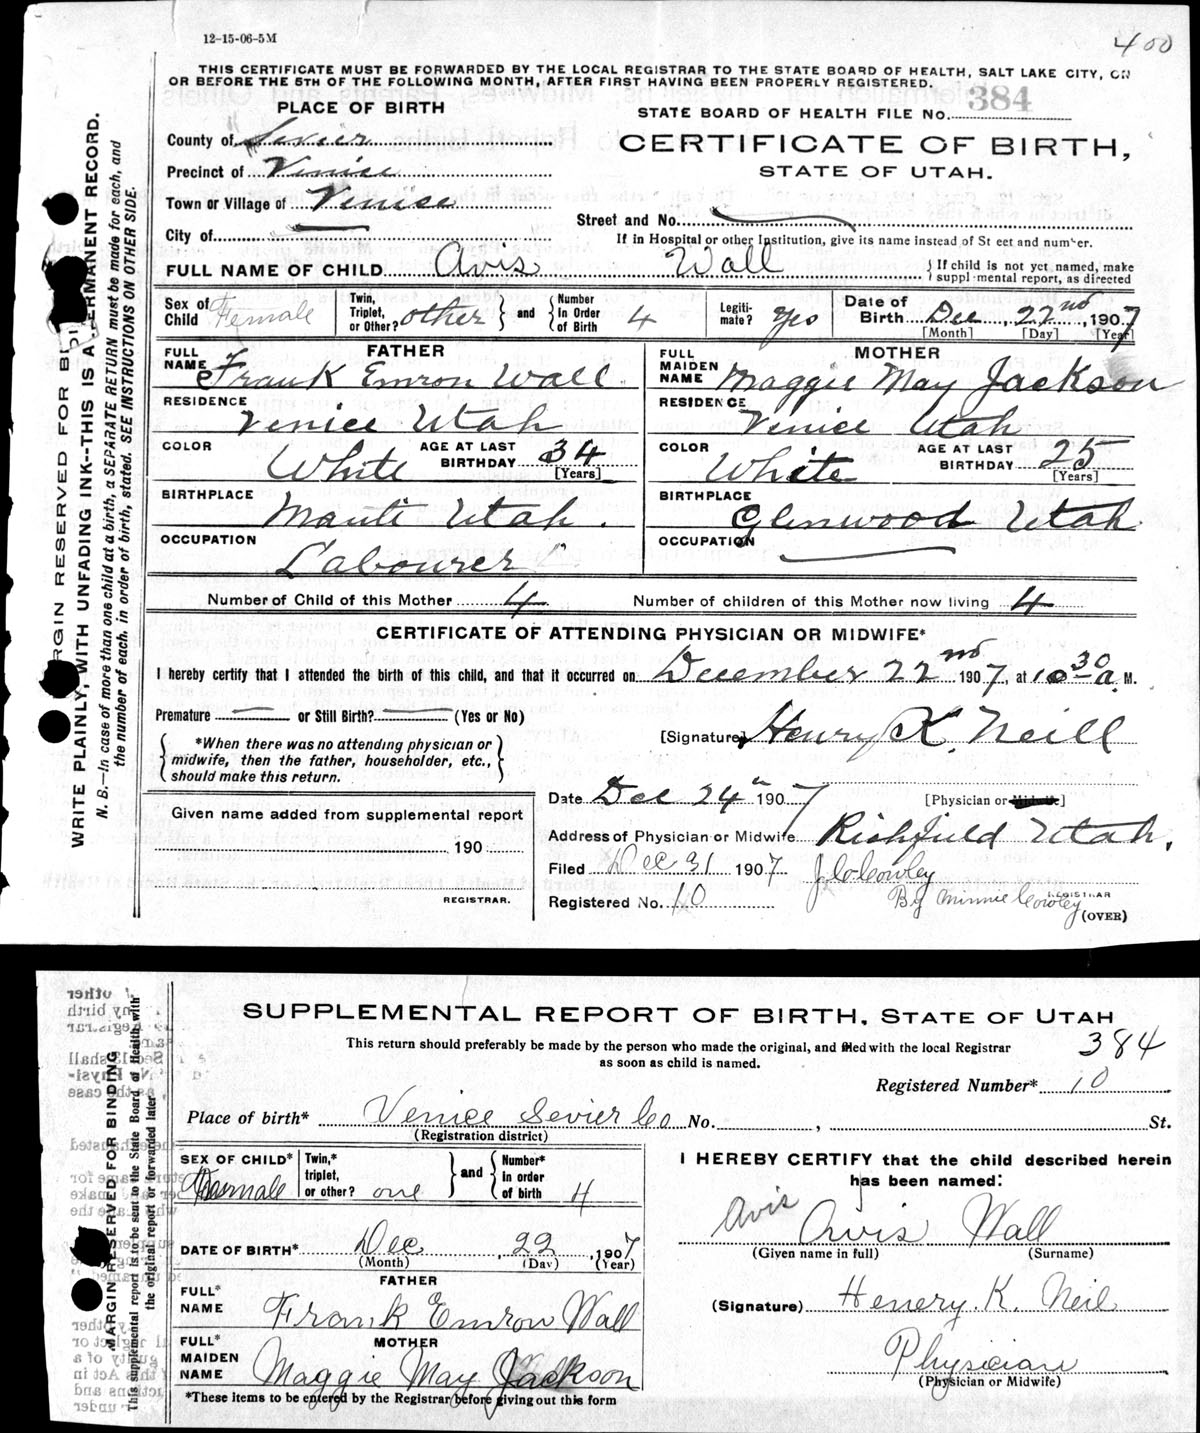 12-15-06-5M
400
THIS CERTIFICATE MUST BE FORWARDED BY THE LOCAL REGISTRAR TO THE STATE BOARD OF HEALTH, SALT LAKE CITY, ON
OR BEFORE THE 5TH OF THE FOLLOWING MONTH, AFTER FIRST HAVING BEEN PROPERLY REGISTERED.
PLACE OF BIRTH
STATE BOARD OF HEALTH FILE No. 384
County of Sevier
CERTIFICATE OF BIRTH,
Precinct of Venice
STATE OF UTAH.
Town or Village of Venice
Street and No.
City of
If in Hospital or other Institution, give its name instead of St eet and number.
FULL NAME OF CHILD Avis Wall
If child is not yet named, make
suppl mental report, as directed
Sex of Child Female
Twin, Triplet, or Other? other and Number in Order of Birth 4
Legitimate? Yes
Date of Birth Dec, 22nd, 1907
[Month] [Day] [Year]
FATHER
FULL NAME Frank Emron Wall
RESIDENCE Venice Utah
COLOR White AGE AT LAST BIRTHDAY 34 [Years]
BIRTHPLACE Manti Utah.
OCCUPATION Labourer
MOTHER
FULL MAIDEN NAME Maggie May Jackson
RESIDENCE Venice Utah
COLOR White AGE AT LAST BIRTHDAY 25 [Years]
BIRTHPLACE Glenwood Utah
OCCUPATION
Number of Child of this Mother 4 Number of children of this Mother now living 4
CERTIFICATE OF ATTENDING PHYSICIAN OR MIDWIFE*
I hereby certify that I attended the birth of this child, and that it occurred on December 22nd 1907, at 10 30 a. M.
Premature or Still Birth? (Yes or No)
[Signature] Henry K. Neill
*When there was no attending physician or
midwife, then the father, householder, etc.,
should make this return.
Date Dec 24th 1907
[Physician or Midwife]
Given name added from supplemental report
190
REGISTRAR.
Address of Physician or Midwife Richfield Utah.
Filed Dec 31 1907 J. Co Cowley
Registered No. 10 By Minnie Cowley
REGISTRAR
(OVER)
MARGIN RESERVED FOR BI
WRITE PLAINLY, WITH UNFADING INK--THIS IS A PERMANENT RECORD.
N. B.—In case of more than one child at a birth, a SEPARATE RETURN must be made for each, and
the number of each. in order of birth, stated. SEE INSTRUCTIONS ON OTHER SIDE.
SUPPLEMENTAL REPORT OF BIRTH, STATE OF UTAH
This return should preferably be made by the person who made the original, and filed with the local Registrar
as soon as child is named.
384
Registered Number* 10
Place of birth* Venice Sevier Co No. , St.
(Registration district)
SEX OF CHILD* Female
Twin,* triplet, or other? one and Number* in order of birth 4
I HEREBY CERTIFY that the child described herein
has been named:
Avis
Avis Wall
(Given name in full) (Surname)
DATE OF BIRTH* Dec, 22, 1907
(Month) (Day) (Year)
FATHER
FULL* NAME Frank Emron Wall
(Signature) Henery. K. Neil
MOTHER
FULL* MAIDEN NAME Maggie May Jackson
Physician
(Physician or Midwife)
*These items to be entered by the Registrar before giving out this form
MARGIN RESERVED FOR BINDING
This supplemental report is to be sent to the State Board of Health with
the original report or forwarded later